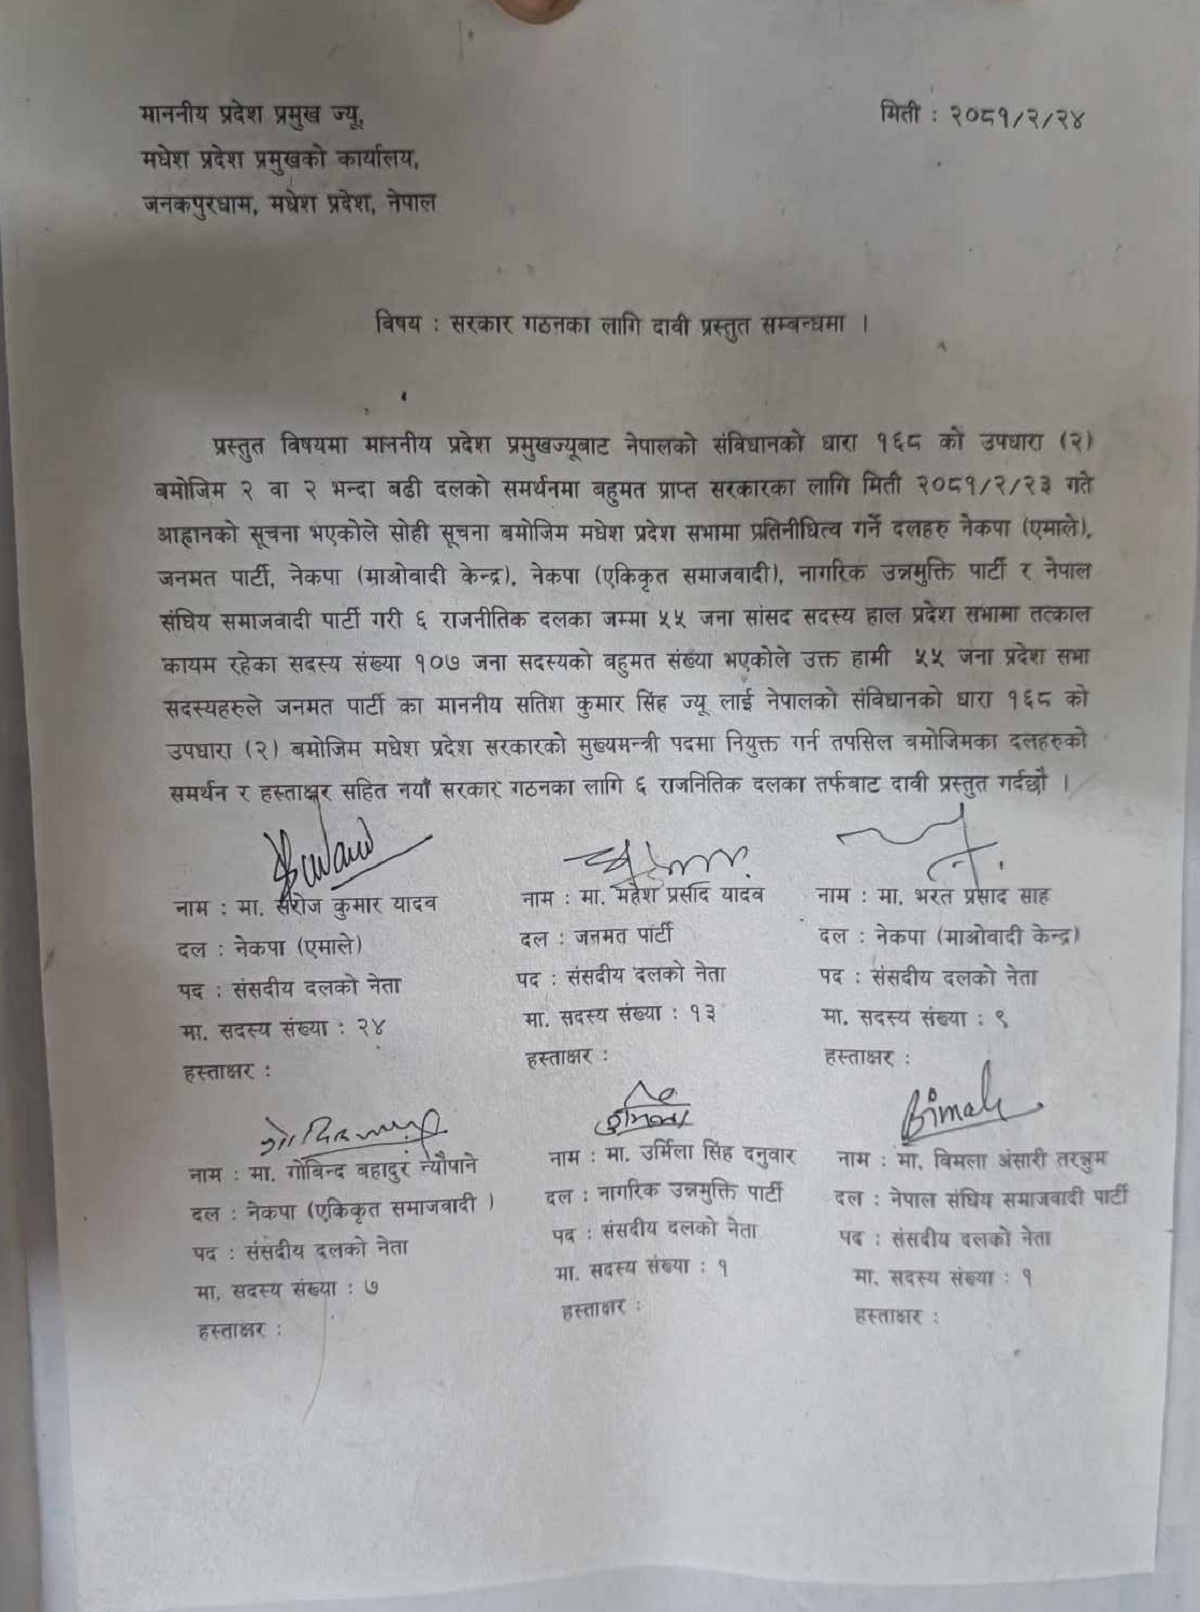 माननीय प्रदेश प्रमुख ज्यू,
मिती : २०८१/२/२४
मधेश प्रदेश प्रमुखको कार्यालय,
जनकपुरधाम, मधेश प्रदेश, नेपाल
विषय : सरकार गठनका लागि दावी प्रस्तुत सम्बन्धमा ।
प्रस्तुत विषयमा माननीय प्रदेश प्रमुखज्यूबाट नेपालको संविधानको धारा १६८ को उपधारा (२)
बमोजिम २ वा २ भन्दा बढी दलको समर्थनमा बहुमत प्राप्त सरकारका लागि मिती २०८१/२/२३ गते
आह्वानको सूचना भएकोले सोही सूचना बमोजिम मधेश प्रदेश सभामा प्रतिनीधित्व गर्ने दलहरु नेकपा (एमाले),
जनमत पार्टी, नेकपा (माओवादी केन्द्र), नेकपा (एकिकृत समाजवादी), नागरिक उन्नमुक्ति पार्टी र नेपाल
संघिय समाजवादी पार्टी गरी ६ राजनीतिक दलका जम्मा ५५ जना सांसद सदस्य हाल प्रदेश सभामा तत्काल
कायम रहेका सदस्य संख्या १०७ जना सदस्यको बहुमत संख्या भएकोले उक्त हामी ५५ जना प्रदेश सभा
सदस्यहरुले जनमत पार्टी का माननीय सतिश कुमार सिंह ज्यू लाई नेपालको संविधानको धारा १६८ को
उपधारा (२) बमोजिम मधेश प्रदेश सरकारको मुख्यमन्त्री पदमा नियुक्त गर्न तपसिल बमोजिमका दलहरुको
समर्थन र हस्ताक्षर सहित नयाँ सरकार गठनका लागि ६ राजनितिक दलका तर्फबाट दावी प्रस्तुत गर्दछौ ।
नाम : मा. सरोज कुमार यादव
दल : नेकपा (एमाले)
पद : संसदीय दलको नेता
मा. सदस्य संख्या : २४
हस्ताक्षर :
नाम : मा. महेश प्रसाद यादव
दल : जनमत पार्टी
पद : संसदीय दलको नेता
मा. सदस्य संख्या : १३
हस्ताक्षर :
नाम : मा. भरत प्रसाद साह
दल : नेकपा (माओवादी केन्द्र)
पद : संसदीय दलको नेता
मा. सदस्य संख्या : ९
हस्ताक्षर :
नाम : मा. गोबिन्द बहादुर न्यौपाने
दल : नेकपा (एकिकृत समाजवादी )
पद : संसदीय दलको नेता
मा. सदस्य संख्या : ७
हस्ताक्षर :
उर्मिला
नाम : मा. उर्मिला सिंह दनुवार
दल : नागरिक उन्नमुक्ति पार्टी
पद : संसदीय दलको नेता
मा. सदस्य संख्या : १
हस्ताक्षर :
Bimala
नाम : मा. विमला अंसारी तरन्नुम
दल : नेपाल संघिय समाजवादी पार्टी
पद : संसदीय दलको नेता
मा. सदस्य संख्या : १
हस्ताक्षर :